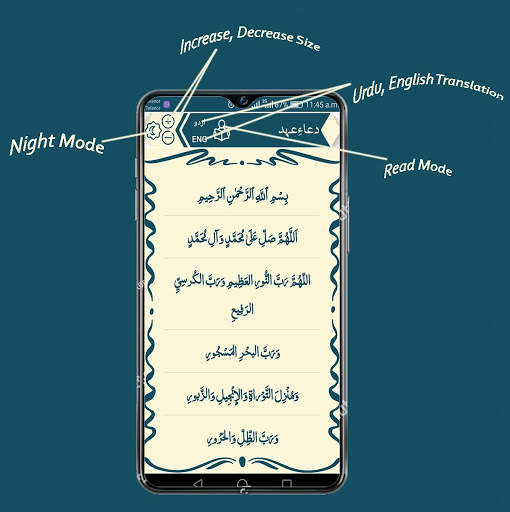 Increase, Decrease Size
Urdu, English Translation
Night Mode
Read Mode
67% 11:45 a.m.
اردو
ENG
دعاءِ عہد
بِسْمِ اللَّهِ الرَّحْمٰنِ الرَّحِيمِ
اَللَّهُمَّ صَلِّ عَلَىٰ مُحَمَّدٍ وَآلِ مُحَمَّدٍ
اَللَّهُمَّ رَبَّ النُّورِ العَظِيمِ وَرَبَّ الكُرسِيِّ
الرَفِيعِ
وَرَبَّ البَحْرِ المَسْجُورِ
وَمُنْزِلَ التَّوْرَاةِ وَالإِنْجِيلِ وَالزَّبُورِ
وَرَبَّ الظِلِّ وَالحَرُورِ